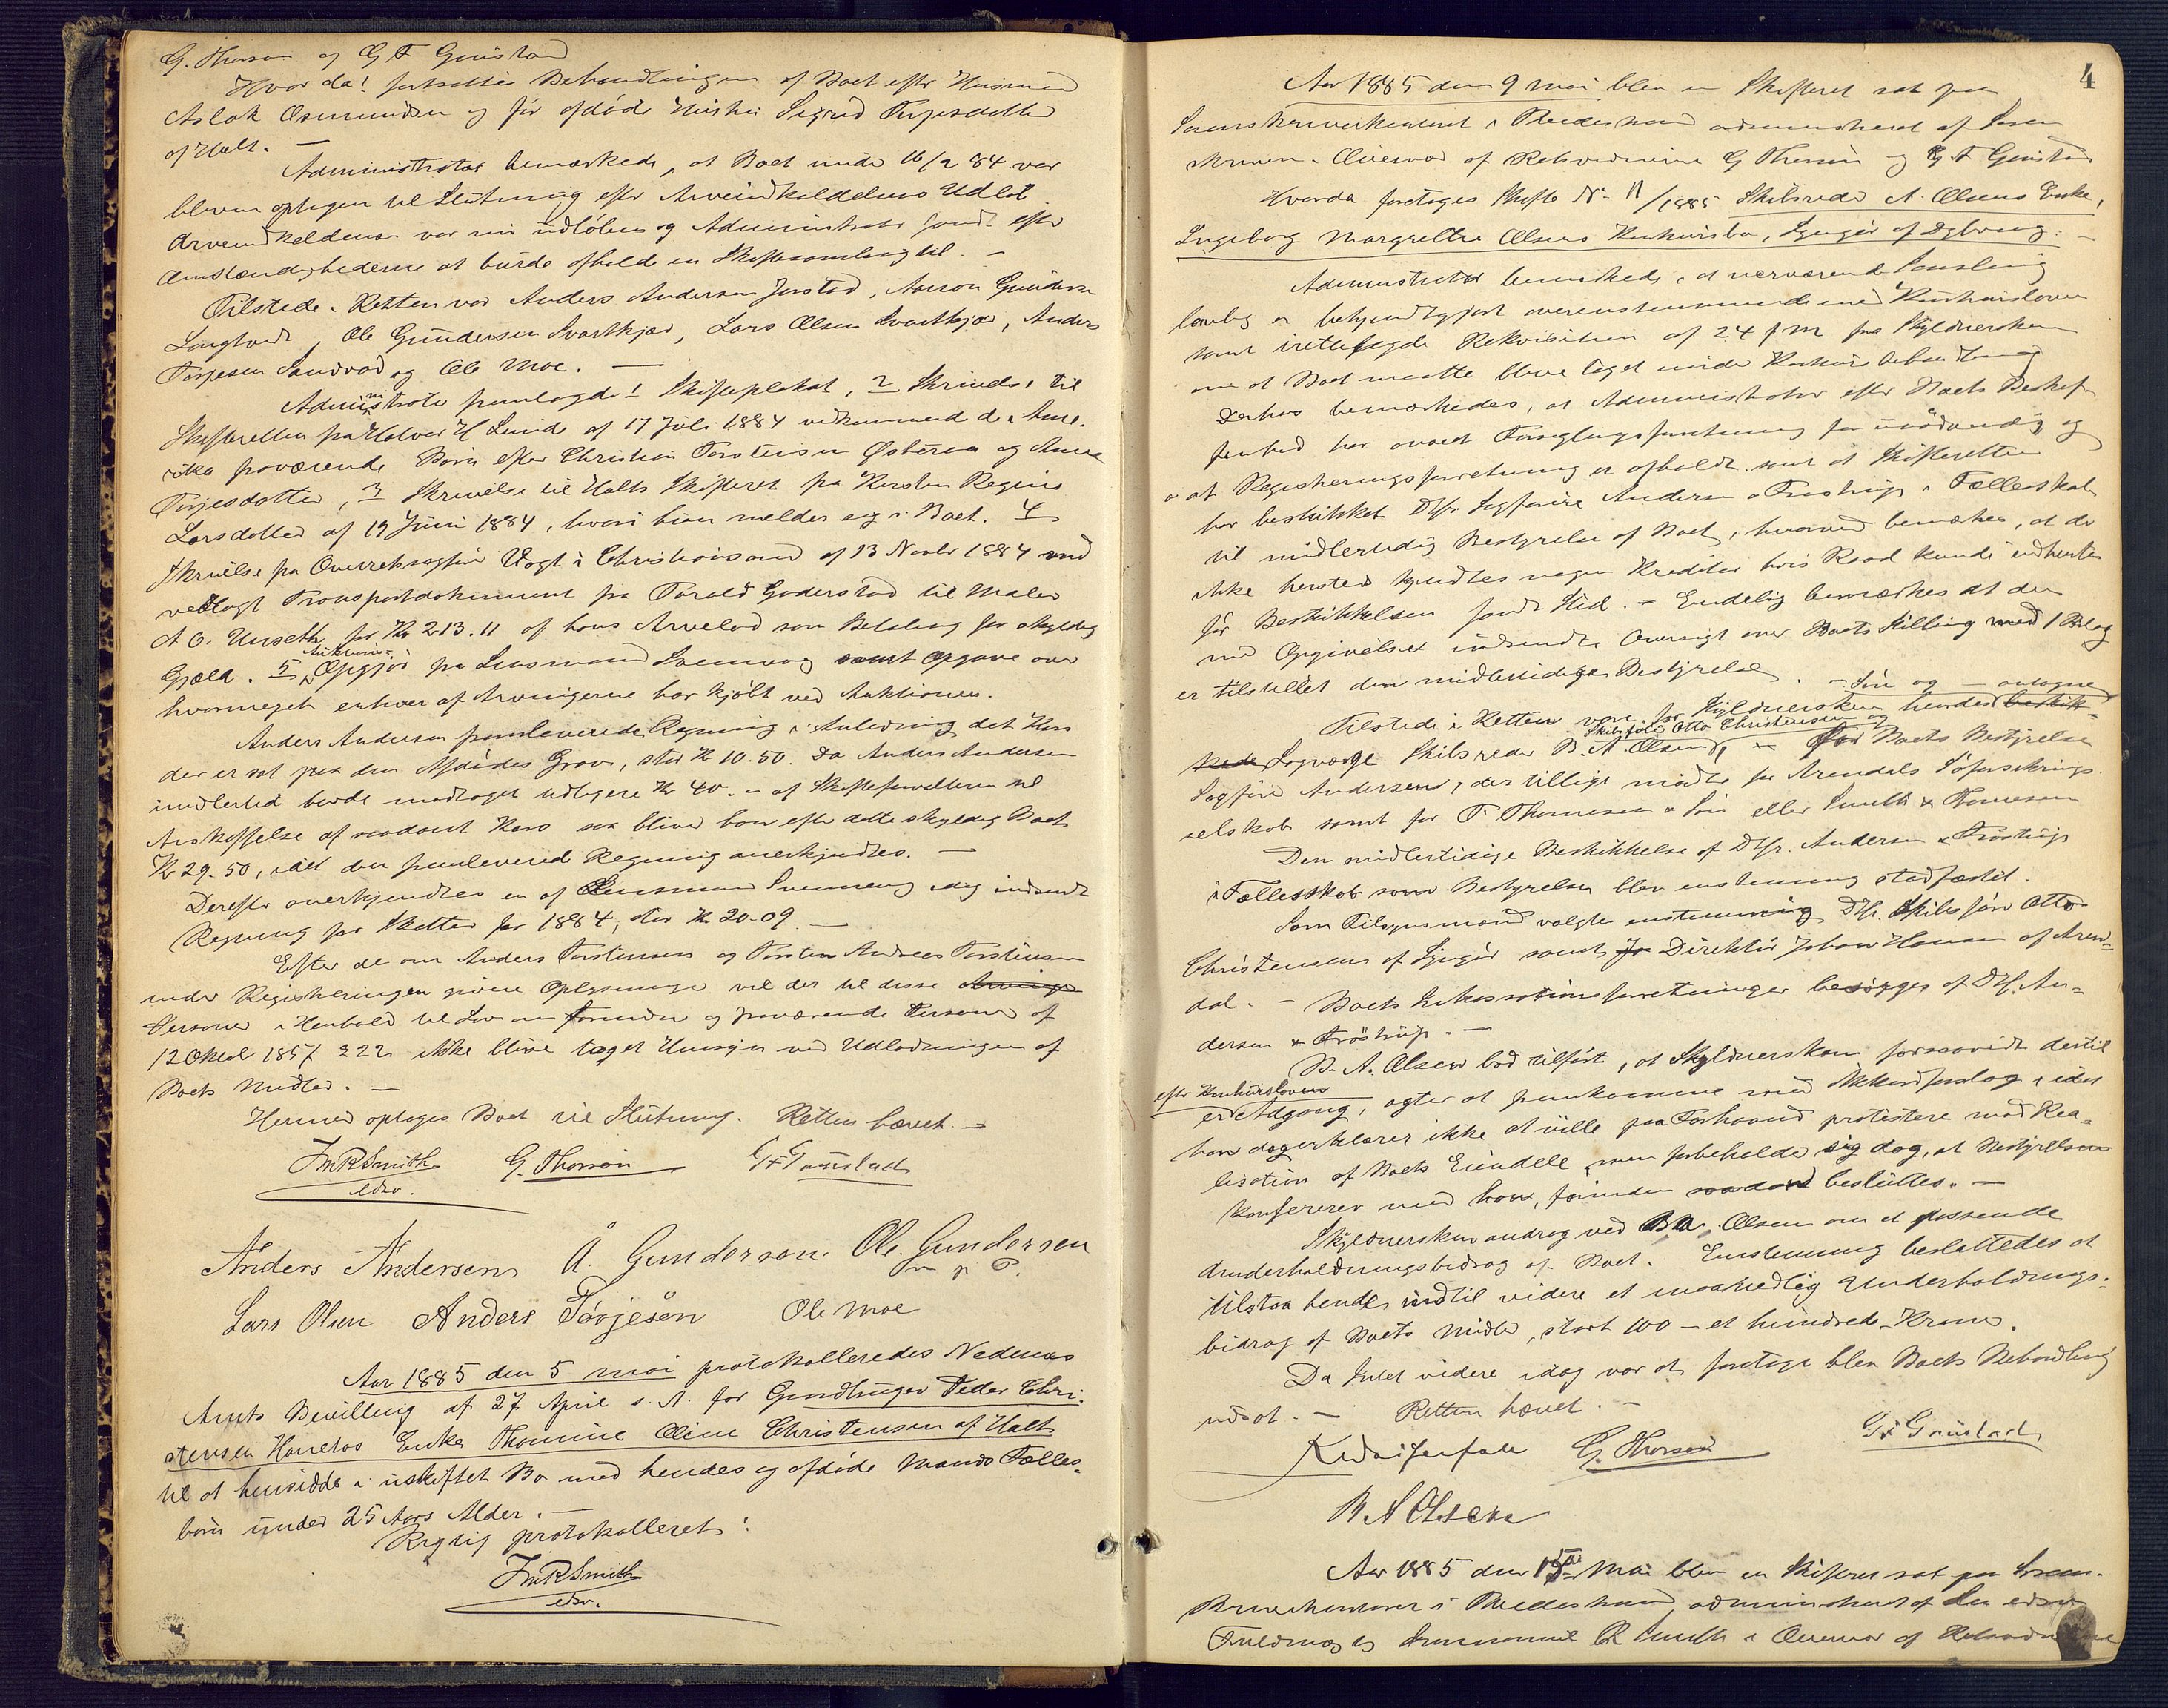 G. Thorsøn og G F Gunstad
Hvor da! fortsattes Behandlingen af Boet efter Husmand
Aslak Osmundsen og før afdøde Hustru Sigrid Terjesdotter
af Holt. —
Administrator bemærkede, at Boet under 16/2 84 var
bleven optagen til Slutning efter Arveindkaldelsens Udløb
Arveindkaldelsen var nu udløben og Administrator fandt efter
Omstændighederne at burde afholde en Skiftesamling til. —
Tilstede i Retten var Anders Andersen Jorstad, Aanon Gundersen
Langtvedt, Ole Gundersen Svartkjær, Lars Olsen Svartkjær, Anders
Torjesen Sandvad og Ole Moe. —
Administrator fremlagde 1 Skifteplakat, 2 Skrivelse til
Skifteretten fra Halvor H Lunde af 17 Juli 1884 vedkommende de i Ame-
rika fraværende Børn efter Christian Torstensen Østeraa og Anne
Terjesdotter, 3 Skrivelse til Holts Skifteret fra Kirsten Regine
Larsdotter af 19 Juni 1884, hvori hun melder sig i Boet. 4
Skrivelse fra Overretssagfører Vogt i Christianssand af 13 Novbr 1884 med
vedlagt Transportdokument fra Torald Goderstad til Maler
A O. Urseth for Kr 213.11 af hans Arvelod som Betaling for skyldig
Gjæld. 5 Auktions- Opgjør fra Lensmand Svenneng samt Opgave over
hvormeget enhver af Arvingerne har kjøbt ved Auktionen.
Anders Andersen fremleverede Regning i Anledning det Kors
der er sat paa den Afdødes Grav, stor Kr 10.50. Da Anders Andersen
imidlertid havde modtaget tidligere Kr 40.- af Skifteforvalteren til
Anskaffelse af saadant Kors saa bliver han efter dette skyldig Boet
Kr 29.50, idet den fremleverede Regning anerkjendtes. —
Derefter anerkjendtes en af Lensmand Svenneng idag indsendt
Regning for Skatter for 1884, stor Kr 20-09. —
Efter de om Anders Torstensen og Torsten Andreas Torstensen
under Registreringen givne Oplysninger vil der til disse Arvinger
Personer i Henhold til Lov om forsvundne og fraværende Personer af
12 Oktob 1857 § 22 ikke blive taget Hensyn ved Udlodningen af
Boets Midler. —
Hermed optages Boet til Slutning. Retten hævet. —
Fr R Smith G. Thorsøn G F Gunstad
edsv.
Anders Andersen Å. Gunderson. Ole. Gundersen
m p P.
Lars Olsen Anders Torjesen Ole Moe
Aar 1885 den 5 mai protokolleredes Nedenæs
Amts Bevilling af 27 April s. A. for Gaardbruger Peder Chri-
stensen Enke Thomine Oline Christensen af Holt
til at hensidde i uskiftet Bo med hendes og afdøde Mands Fælles-
børn under 25 Aars Alder. —
Rigtig protokolleret:
Fr R Smith
edsv.
4
Aar 1885 den 9 mai blev en Skifteret sat paa
Sorenskriverkontoret i Tvedestrand administreret af Soren
skriveren i Overvær af Retsvidnerne G Thorsøn og G F Gunstad
Hvorda foretoges Skifte No 11/1885 Skibsreder A. Olsens Enke,
Ingeborg Margrethe Olsens Konkursbo, Lyngør af Dybvaag. —
Administrator bemærkede, at nærværende Samling
lovlig er bekjendtgjort overensstemmende med Konkursloven
samt irettelagde Rekvisition af 24 f M fra Skyldnersken
om at Boet maatte blive taget under Konkursbehandling
Derhos bemærkedes, at Administrator efter Boets Beskaf-
fenhed har anseet Forseglingsforretning for unødvendig og
at Registreringsforretning er afholdt samt at Skifteretten
har beskikket DHr Sagførere Andersen & Frøstrup i Fællesskab
til midlertidig Bestyrelse af Boet, hvorved bemærkes, at der
ikke hersteds kjendtes nogen Kreditor hvis Raad kunde indhentes
før Beskikkelsen fandt Sted. — Endelig bemærkes at den
med Opgivelse indsendte Oversigt over Boets Stilling med 1 Bilag
er tilstillet den midlertidige Bestyrelse. —
Tilstede i Retten var for Skyldnersken hendes Søn og antagne beskik-
kede Lagværge Skibsreder B. A. Olsen, Skibsfører Otto Christensen og for Boets Bestyrelse
Sagfører Andersen, der tillige mødte for Arendals Søforsikrings-
selskab samt for T. Thommesen & Søn eller Smith & Thommesen
Den midlertidige Beskikkelse af DHr. Andersen & Frøstrup
i Fællesskab som Bestyrelse blev enstemmig stadfæstet.
Som Tilsynsmænd valgtes enstemmig DHr. Skibsfører Otto
Christensen af Lyngør samt Jo Direktør Johan Hansen af Aren-
dal. — Boets Inkassationsforretninger besørges af DHr. An-
dersen & Frøstrup. —
B. A. Olsen lod tilføre, at Skyldnersken forsaavidt dertil
efter Konkursloven er Adgang, agter at fremkomme med Akkordforslag, idet
han dog erklærer ikke at ville paa Forhaand protestere mod Rea-
lisation af Boets Eiendele, men forbeholder sig dog, at Bestyrelsen
konfererer med ham, førinden saadant besluttes. —
Skyldnersken androg ved B A. Olsen om et passende
Underholdningsbidrag af Boet. Enstemmig besluttedes at
tilstaa hende indtil videre et maanedlig Underholdnings-
bidrag af Boets Midler, stort 100 – et hundrede – Kroner.
Da Intet videre idag var at foretage blev Boets Behandling
udsat. — Retten hævet. —
G. Thorsøn G F Gunstad
B A Olsen
Aar 1885 den 15de Mai blev en Skifteret sat paa Soren-
skriverkontoret i Tvedestrand, administreret af den edsv
Fuldmægtig R Smith i Overvær af Retsvidnerne